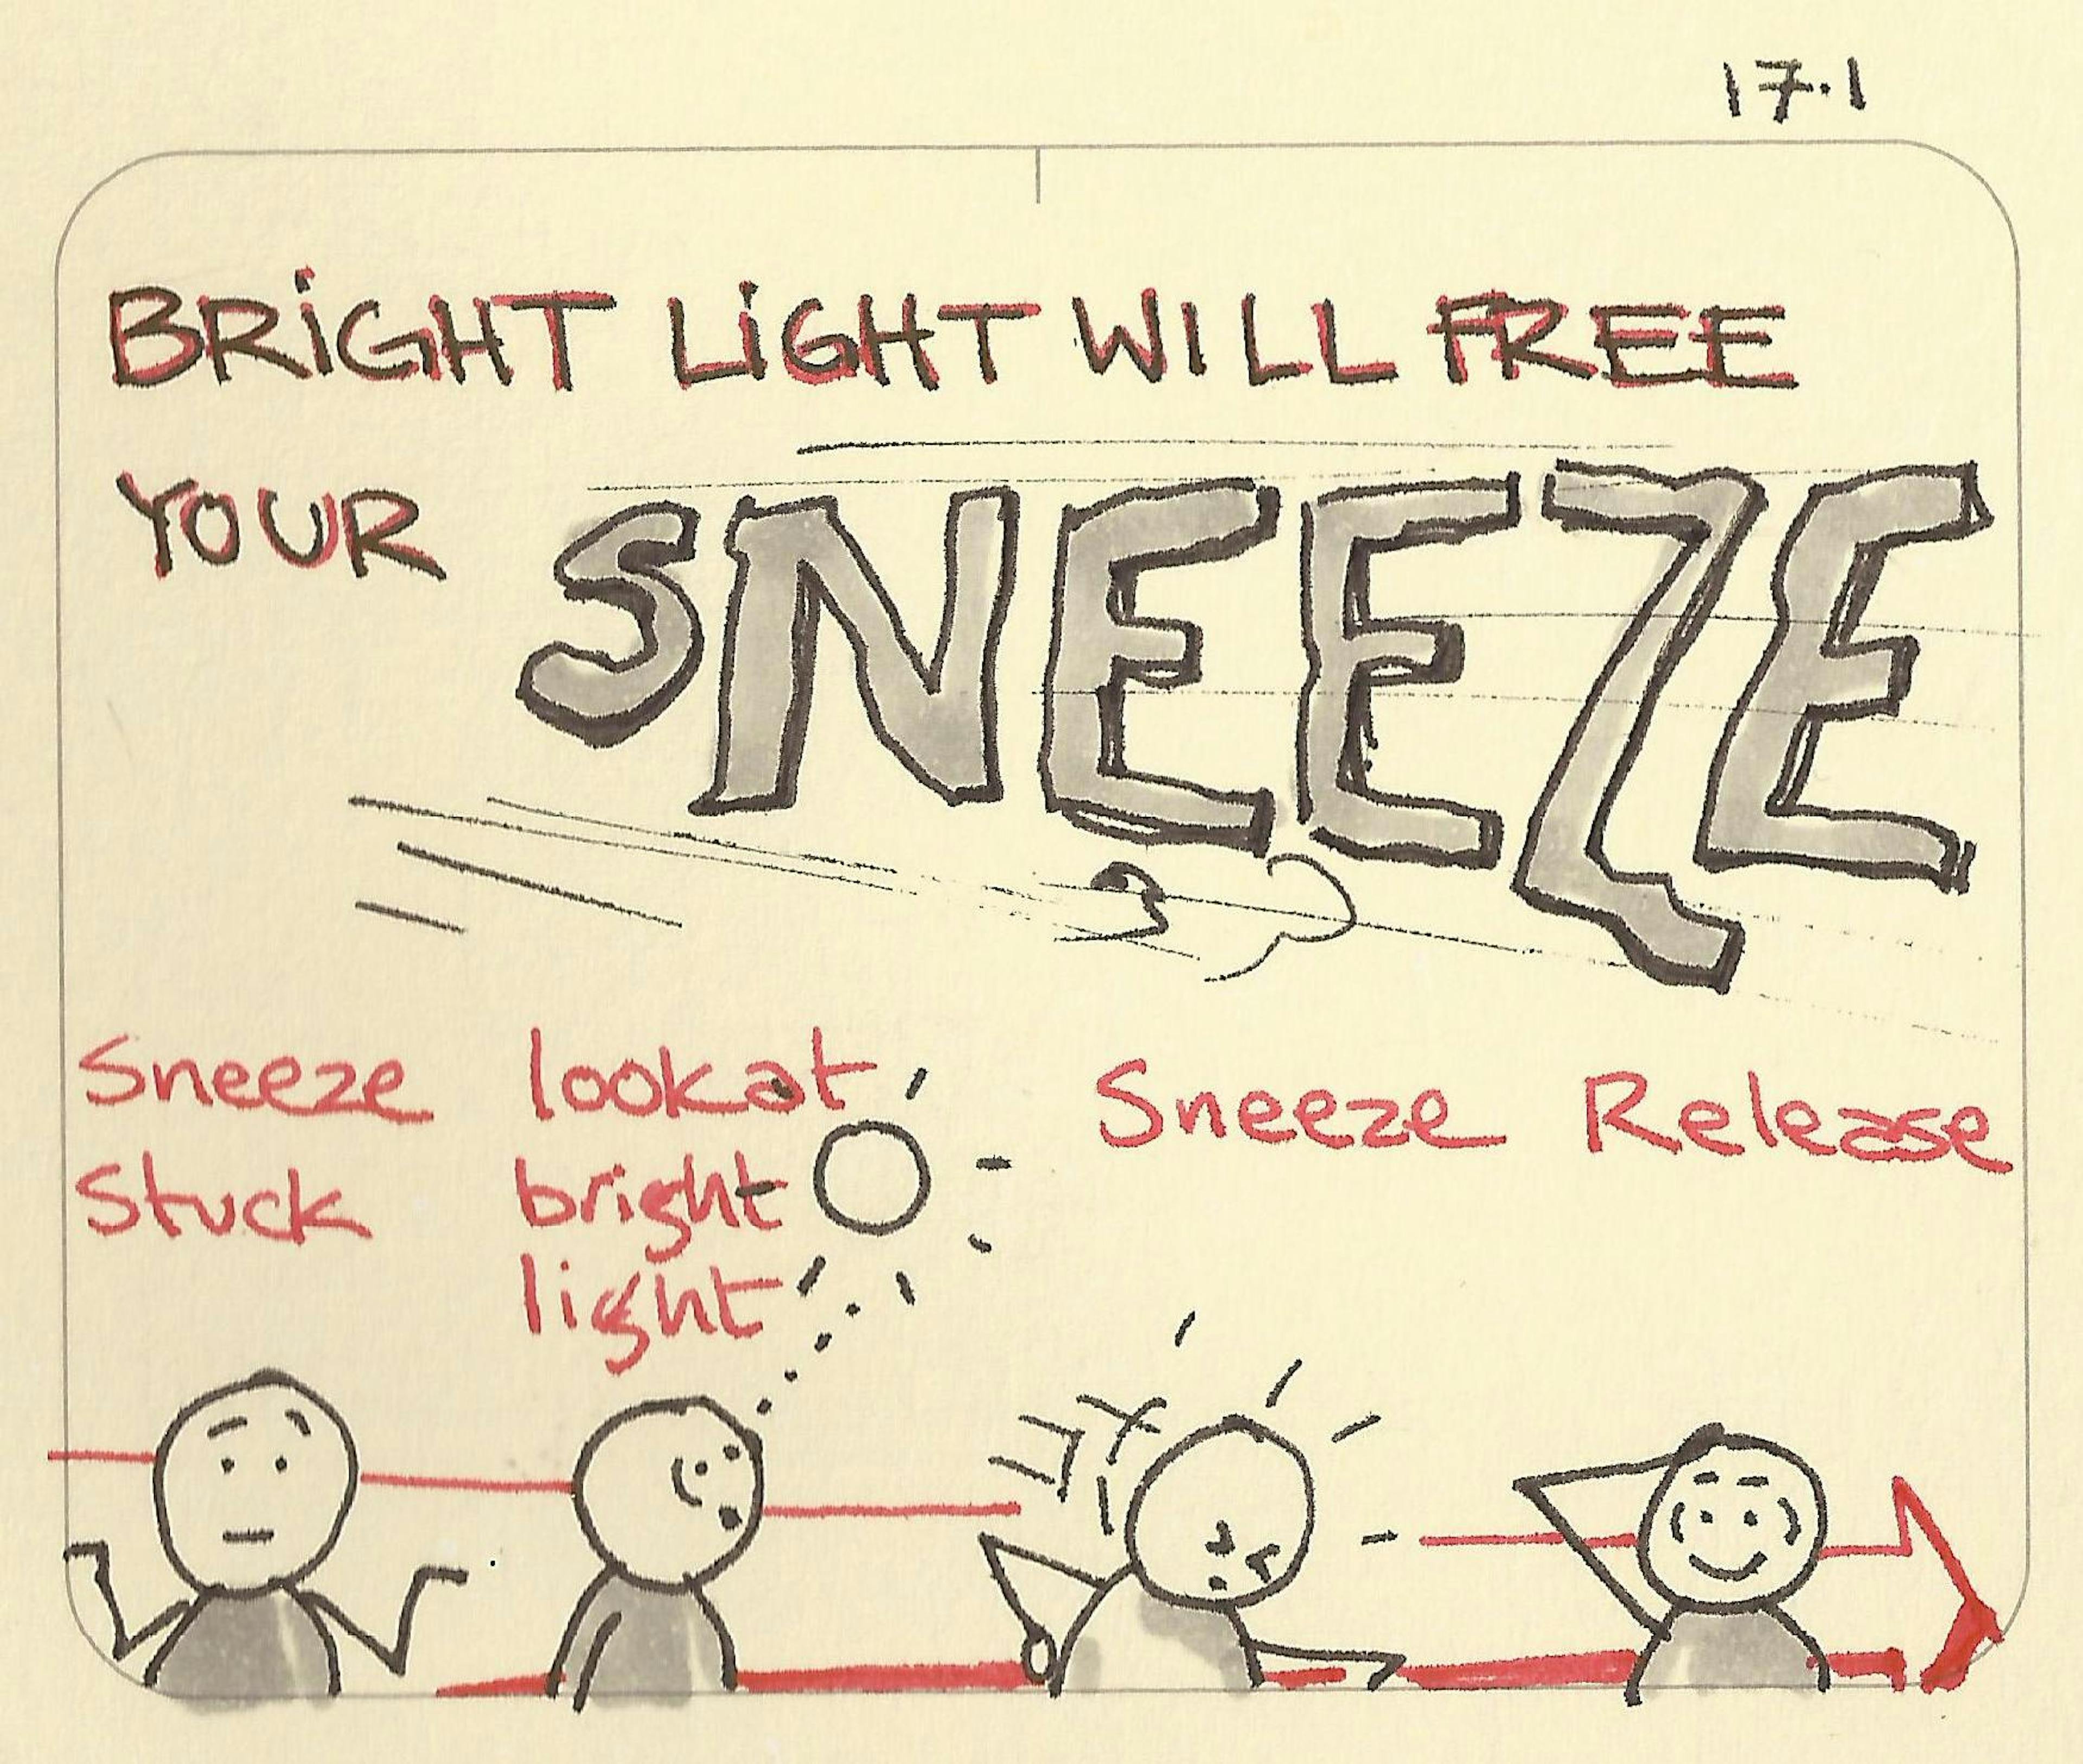 17.1
BRiGHT LiGHT WILL FREE
YOUR SNEEZE
Sneeze
Stuck
look at
bright
light
Sneeze Release